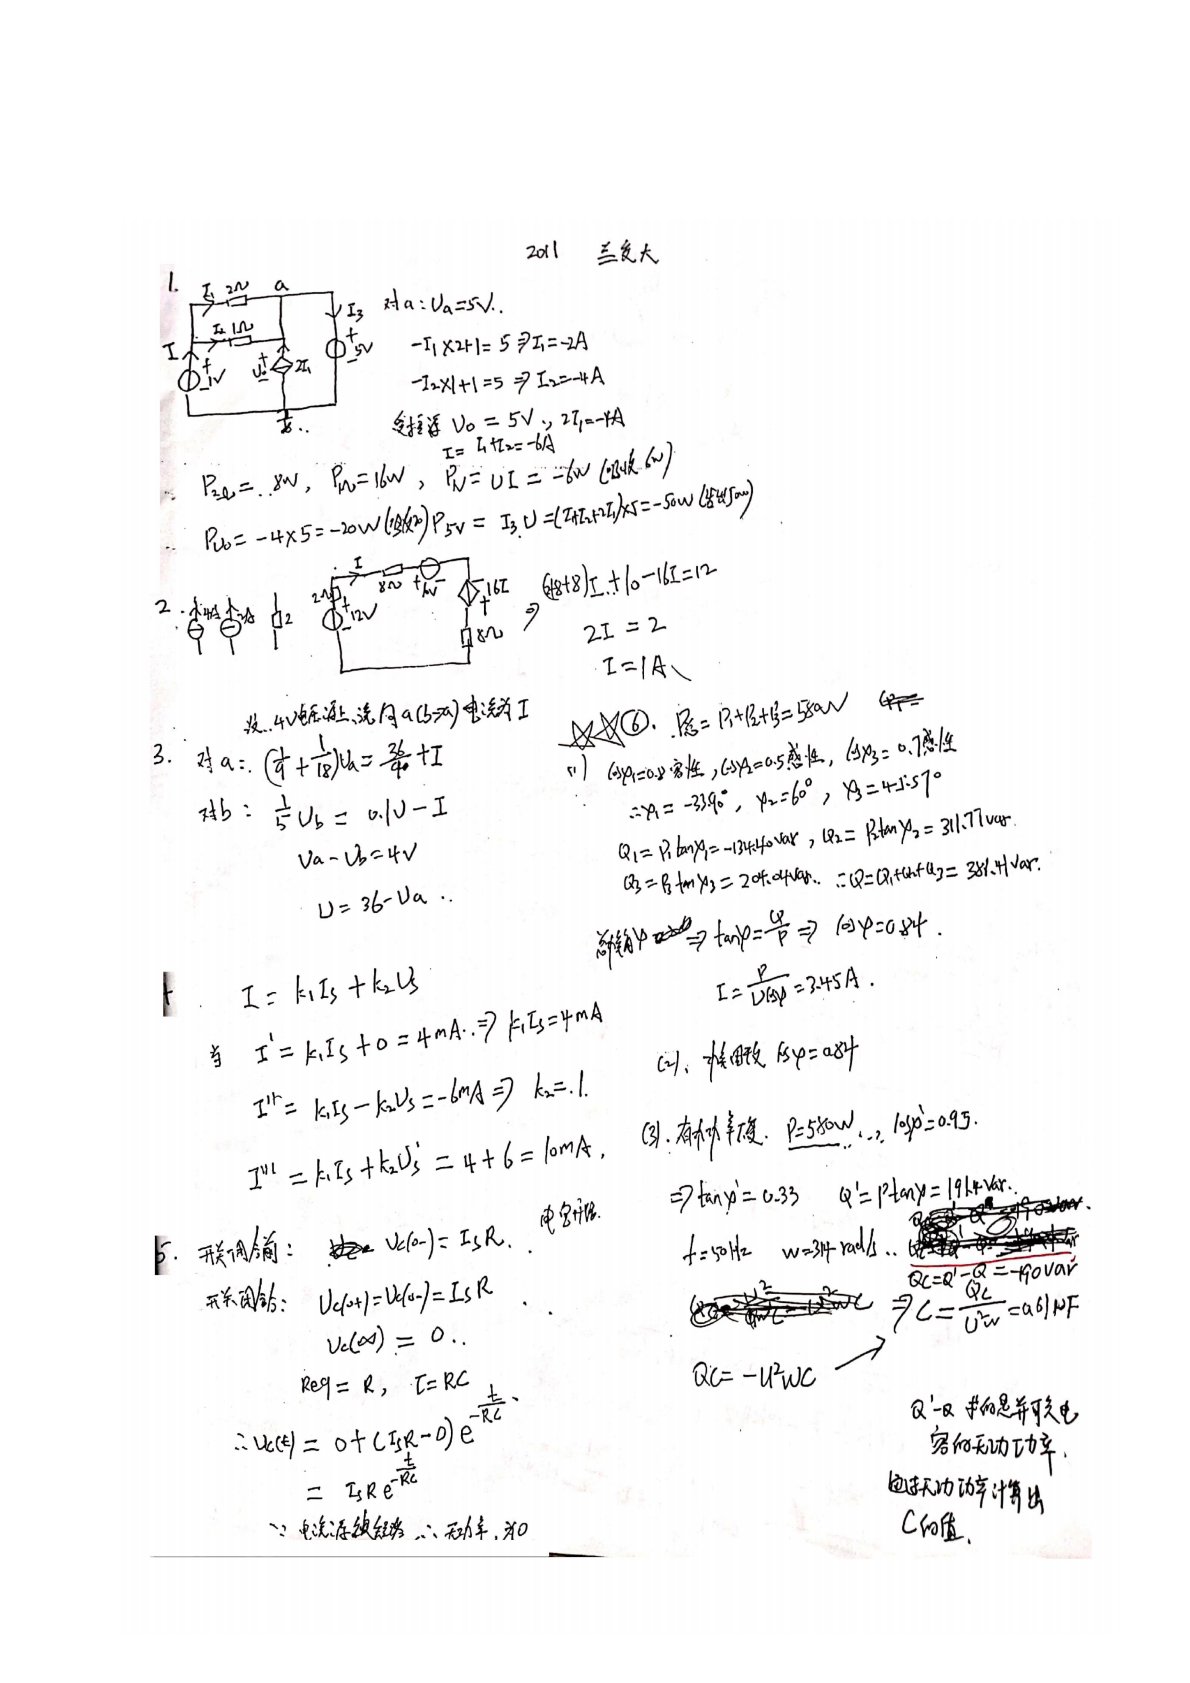 2011 兰交大
1.
I₁ 2Ω a
I₂ 1Ω
I₃
I
+
-
1V
U₀
2I₁
5V
对a:Ua=5V..
-I₁×2+1=5 ⇒I₁=-2A
-I₂×1+1=5 ⇒ I₂=-4A
受控源 U₀=5V, 2I₁=-4A
I= I₁+I₂=-6A
P2Ω=8W, P1Ω=16W, P1V=UI=-6W(吸收6W)
PU₀=-4×5=-20W(吸收20) P5V=I₃U=(I₁+I₂+2I₁)×5=-50W(
2.
4A
2
I
2Ω
8Ω
12V
16I
8Ω
+8+8)I+10-16I=12
2I=2
I=1A
设..4V电压源上流向a(b→a)电流为I
3. 对a: (1/9+1/18)Ua=+I
对b: 1/5 Ub=0.1U-I
Ua-Ub=4V
U=36-Ua..
I=k₁Is+k₂Us
当 I'=k₁Is+0=4mA..⇒k₁Is=4mA
I''=k₁Is-k₂Us=-6mA⇒ k₂=.1.
I'''=k₁Is+k₂Us'=4+6=10mA,
5. 开关闭合前: Uc(0-)=IsR. 电容开路.
开关闭合: Uc(0+)=Uc(0-)=IsR
Uc(∞)=0..
Req=R, τ=RC
∴Uc(t)=0+(IsR-0)e^{-t/RC}
=IsRe^{-t/RC}
∵电流源被短路 ∴无功率,为0
⑥. P总=P₁+P₂+P₃=580W
(1) cosφ₁=0.8容性,cosφ₂=0.5感性,cosφ₃=0.7感性
∴φ₁=, φ₂=60°, φ₃=45.57°
Q₁=P₁tanφ₁=-134.40var, Q₂=P₂tanφ₂=311.77var.
Q₃=P₃tanφ₃=204.04var.. ∴Q=Q₁+Q₂+Q₃=381.41var.
⇒ tanφ=Q/P ⇒ cosφ=0.84.
I=P/Ucosφ=3.45A.
(2). cosφ=0.84
(3). 有功功率不变. P=580W.., cosφ'=0.95.
⇒tanφ'=0.33 Q'=Ptanφ=191.4var..
f=50Hz w=314rad/s..
QC=Q'-Q=-190var
⇒C=QC/U²w=
QC=-U²WC
Q'-Q 求的是并联电
容的无功功率.
无功功率计算出
C的值.